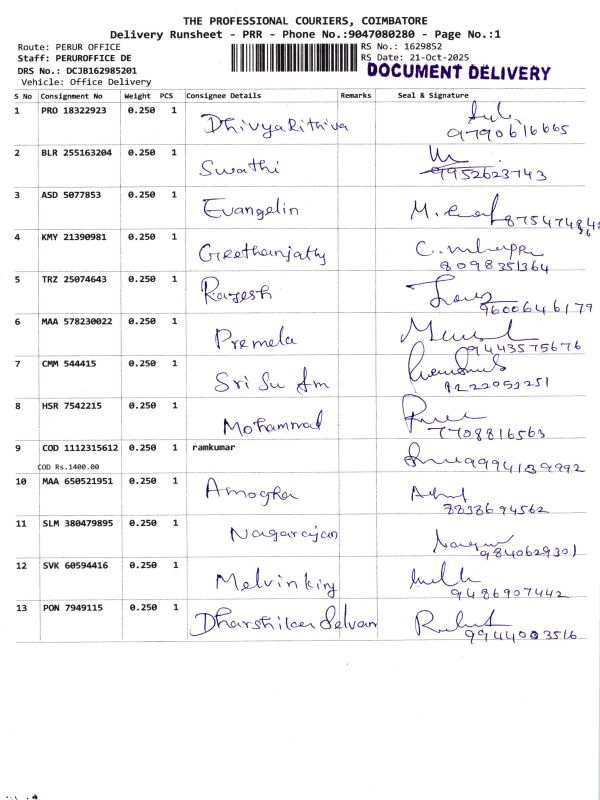 THE PROFESSIONAL COURIERS, COIMBATORE
Delivery Runsheet - PRR - Phone No.:9047080280 - Page No.:1
Route: PERUR OFFICE
RS No.: 1629852
Staff: PERUROFFICE DE
RS Date: 21-Oct-2025
DRS No.: DCJB162985201
DOCUMENT DELIVERY
Vehicle: Office Delivery
S No Consignment No Weight PCS Consignee Details Remarks Seal & Signature
1 PRO 18322923 0.250 1 DhivyaRithiva
9790616665
2 BLR 255163204 0.250 1 Swathi
9952623743
3 ASD 5077853 0.250 1 Evangelin
4 KMY 21390981 0.250 1 Geethanjaly
8098351364
5 TRZ 25074643 0.250 1 Rajesh
9600646179
6 MAA 578230022 0.250 1 Premela
9443575676
7 CMM 544415 0.250 1 Sri Su Am
8 HSR 7542215 0.250 1 Mohammad
7708816563
9 COD 1112315612 0.250 1 ramkumar
COD Rs.1400.00
9994139992
10 MAA 650521951 0.250 1 Amogha
8838694562
11 SLM 380479895 0.250 1 Nagarajan
9840629301
12 SVK 60594416 0.250 1 Melvinking
9486907442
13 PON 7949115 0.250 1 Dharshikaa Selvan
9944003516